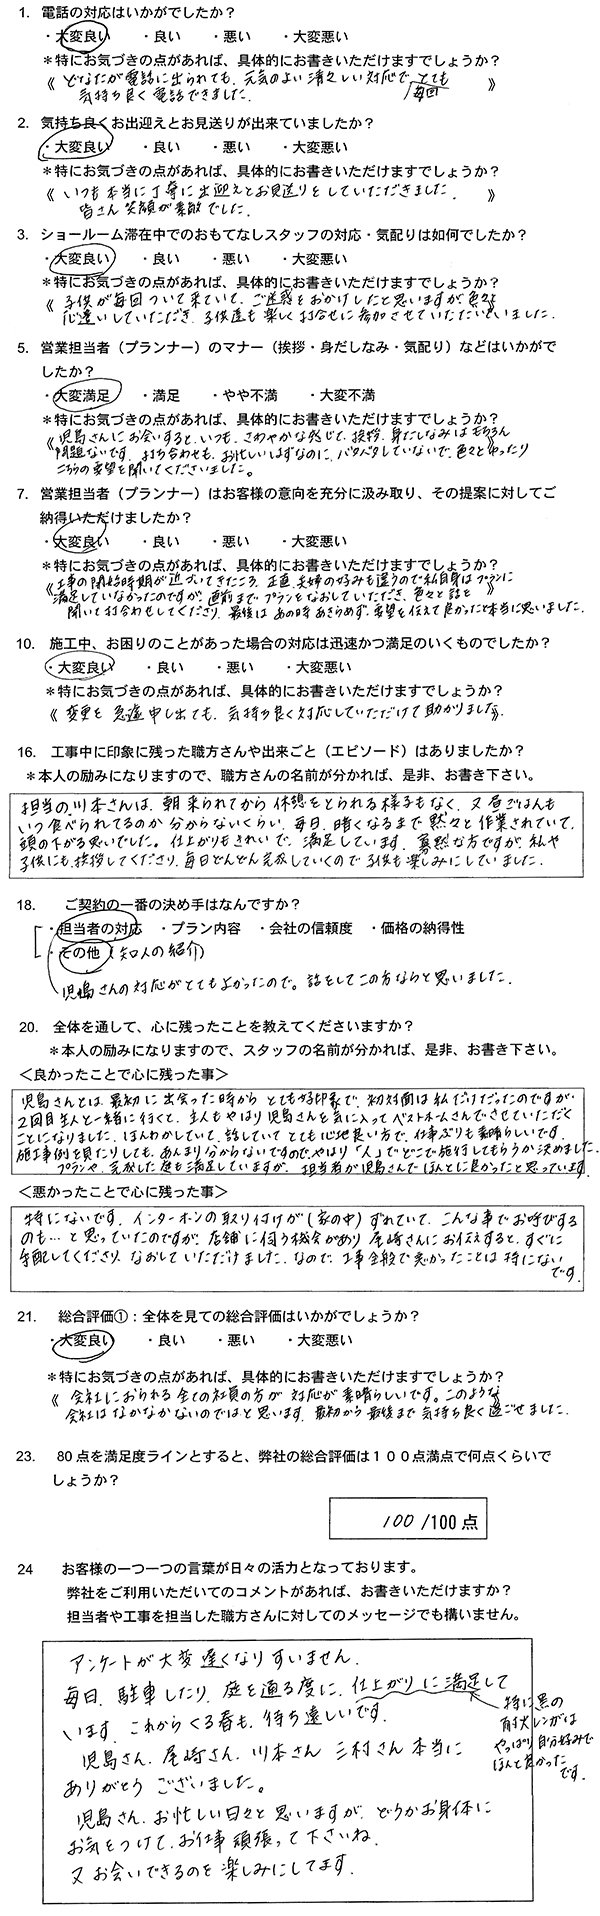 1. 電話の対応はいかがでしたか？
・大変良い ・良い ・悪い ・大変悪い
＊特にお気づきの点があれば、具体的にお書きいただけますでしょうか？
《 どなたが電話に出られても、元気のよい清々しい対応で、とても
毎回
気持ち良く電話できました。 》
2. 気持ち良くお出迎えとお見送りが出来ていましたか？
・大変良い ・良い ・悪い ・大変悪い
＊特にお気づきの点があれば、具体的にお書きいただけますでしょうか？
《 いつも本当に丁寧に出迎えとお見送りをしていただきました。 》
皆さん笑顔が素敵でした。
3. ショールーム滞在中でのおもてなしスタッフの対応・気配りは如何でしたか？
・大変良い ・良い ・悪い ・大変悪い
＊特にお気づきの点があれば、具体的にお書きいただけますでしょうか？
《 子供が毎回ついて来ていて、ご迷惑をおかけしたと思いますが、色々と 》
心遣いしていただき、子供達も楽しく打合せに参加させていただいました。
5. 営業担当者（プランナー）のマナー（挨拶・身だしなみ・気配り）などはいかがで
したか？
・大変満足 ・満足 ・やや不満 ・大変不満
＊特にお気づきの点があれば、具体的にお書きいただけますでしょうか？
《 児島さんにお会いすると、いつも、さわやかな感じで、挨拶、身だしなみはもちろん 》
問題ないです。打ち合わせも、お忙しいはずなのに、バタバタしていないで、色々とゆったり
こちらの要望を聞いてくださいました。
7. 営業担当者（プランナー）はお客様の意向を充分に汲み取り、その提案に対してご
納得いただけましたか？
・大変良い ・良い ・悪い ・大変悪い
＊特にお気づきの点があれば、具体的にお書きいただけますでしょうか？
《 工事の開始時期が近づいてきたころ、正直、夫婦の好みも違うので私自身はプランに 》
満足していなかったのですが、直前までプランをなおしていただき、色々と話を
聞いて打合わせしてくださり、最後はあの時あきらめず、要望を伝えて良かったと本当に思いました。
10. 施工中、お困りのことがあった場合の対応は迅速かつ満足のいくものでしたか？
・大変良い ・良い ・悪い ・大変悪い
＊特にお気づきの点があれば、具体的にお書きいただけますでしょうか？
《 変更を急遽申し出ても、気持ち良く対応していただけて助かりました。 》
16. 工事中に印象に残った職方さんや出来ごと（エピソード）はありましたか？
＊本人の励みになりますので、職方さんの名前が分かれば、是非、お書き下さい。
担当の川本さんは、朝来られてから休憩をとられる様子もなく、又昼ごはんも
いつ食べられてるのか分からないくらい、毎日、暗くなるまで黙々と作業されていて、
頭の下がる思いでした。仕上がりもきれいで、満足しています。寡黙な方ですが、私や
子供にも挨拶してくださり、毎日どんどん完成していくので子供も楽しみにしていました。
18. ご契約の一番の決め手はなんですか？
・担当者の対応 ・プラン内容 ・会社の信頼度 ・価格の納得性
・その他（知人の紹介）
児島さんの対応がとてもよかったので。話をしてこの方ならと思いました。
20. 全体を通して、心に残ったことを教えてくださいますか？
＊本人の励みになりますので、スタッフの名前が分かれば、是非、お書き下さい。
＜良かったことで心に残った事＞
児島さんとは、最初に出会った時からとても好印象で、初対面は私だけだったのですが、
2回目主人と一緒に行くと、主人もやはり児島さんを気に入ってベストホームさんでさせていただく
ことになりました。ほんわかしていて、話していてとても心地良い方で、仕事ぶりも素晴らしいです。
施工事例を見たりしても、あんまり分からないですので、やはり「人」でどこで施行してもらうか決めました。
プランや、完成した庭も満足していますが、担当者が児島さんでほんとに良かったと思っています。
＜悪かったことで心に残った事＞
特にないです。インターホンの取り付けが（家の中）ずれていて、こんな事でお呼びする
のも…と思っていたのですが、店舗に伺う機会があり尾崎さんにお伝えすると、すぐに
手配してくださり、なおしていただけました。なので、工事全般で悪かったことは特にない
です。
21. 総合評価①：全体を見ての総合評価はいかがでしょうか？
・大変良い ・良い ・悪い ・大変悪い
＊特にお気づきの点があれば、具体的にお書きいただけますでしょうか？
《 会社におられる全ての社員の方が対応が素晴らしいです。このような 》
会社はなかなかないのではと思います。最初から最後まで気持ち良く過ごせました。
23. 80点を満足度ラインとすると、弊社の総合評価は１００点満点で何点くらいで
しょうか？
100/100 点
24 お客様の一つ一つの言葉が日々の活力となっております。
弊社をご利用いただいてのコメントがあれば、お書きいただけますか？
担当者や工事を担当した職方さんに対してのメッセージでも構いません。
アンケートが大変遅くなりすいません。
毎日、駐車したり、庭を通る度に、仕上がりに満足して
います。これからくる春も、待ち遠しいです。
特に黒の
耐火レンガは
やっぱり自分好みで
ほんと良かった
です。
児島さん、尾崎さん、川本さん 三村さん本当に
ありがとうございました。
児島さん、お忙しい日々と思いますが、どうかお身体に
お気をつけて、お仕事頑張って下さいね。
又お会いできるのを楽しみにしてます。